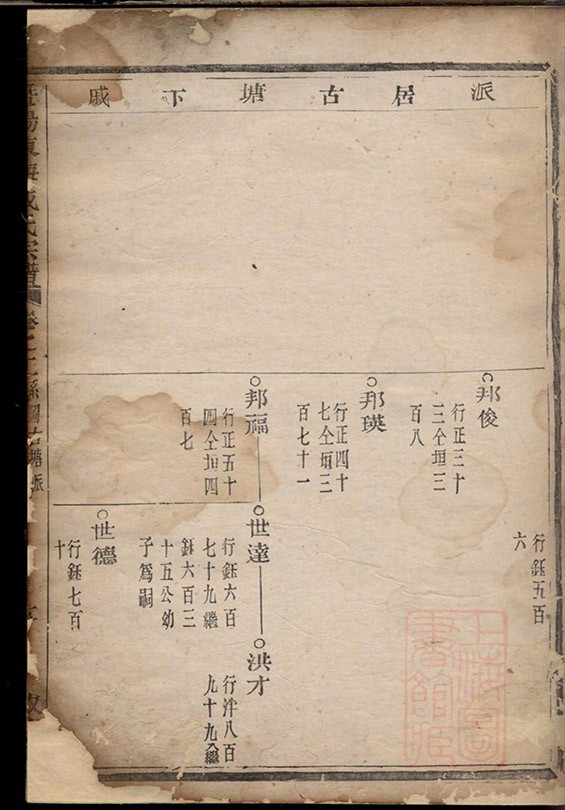 派居古塘下戚
行鈺五百
六
邦俊
行正三十
三仝垣三
百八
邦瑛
行正四十
七仝垣三
百七十一
邦福
行正五十
四仝垣四
百七
世達
行鈺六百
七十九繼
鈺六百三
十五公幼
子爲嗣
洪才
行泮八百
九十九繼
世德
行鈺七百
十
陽東海戚氏宗譜
系圖古塘派